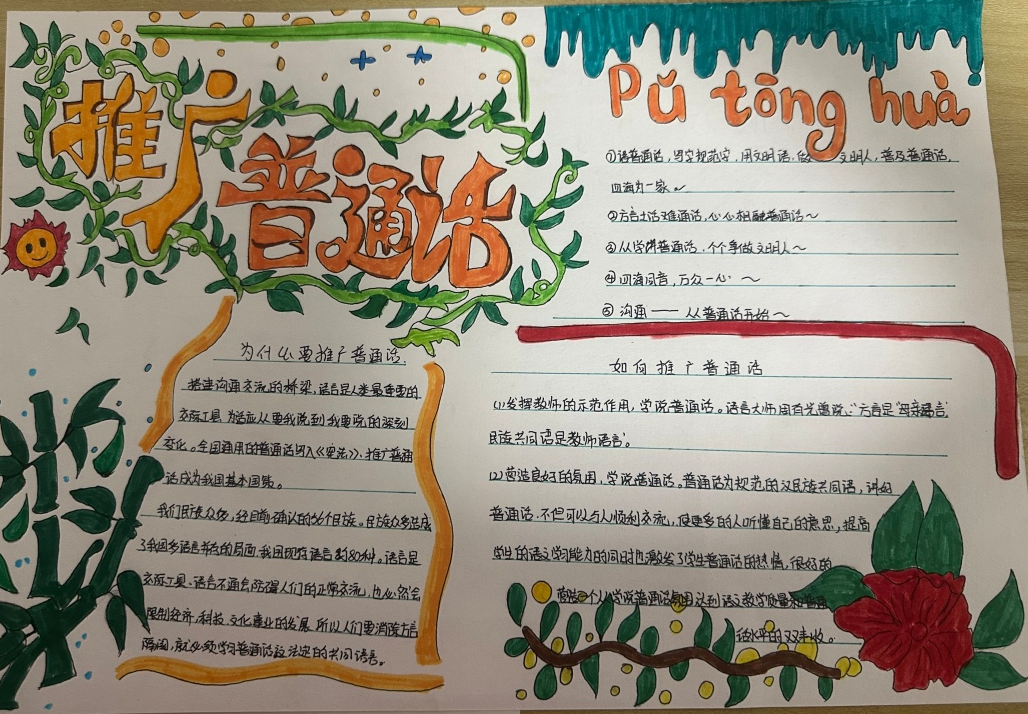 推广
普通话
Pǔ tōng huà
①说普通话,写规范字,用文明语,做文明人,普及普通话,
四海为一家。~
②方言土话难通话,心心相融普通话~
③从学讲普通话,个个争做文明人~
④四海同音,万众一心~
⑤沟通——从普通话开始~
为什么要推广普通话
搭建沟通交流的桥梁,语言是人类最重要的
交际工具,为适应从要我说到我要说的深刻
变化。全国通用的普通话写入《宪法》,推广普通
话成为我国基本国策。
我们民族众多,经目前确认的56个民族。民族众多造成
了我国多语言并存的局面,我国现存语言约80种。语言是
交际工具、语言不通会阻碍人们的正常交流,也必然会
限制经济、科技、文化事业的发展,所以人们要消除方言
隔阂,就必须学习普通话这法定的共同语言。
如何推广普通话
(1)发挥教师的示范作用,学说普通话。语言大师周有光曾说:“方言是‘母亲语言’
民族共同语是教师语言’。
(2)营造良好的氛围,学说普通话。普通话为规范的汉民族共同语,讲好
普通话 不但可以与人顺利交流,使更多的人听懂自己的意思,提高
学生的语文学习能力的同时也激发了学生普通话的热情,很好的
营造一个人学说普通话氛围达到语文教学质量和普通
话水平的双丰收。